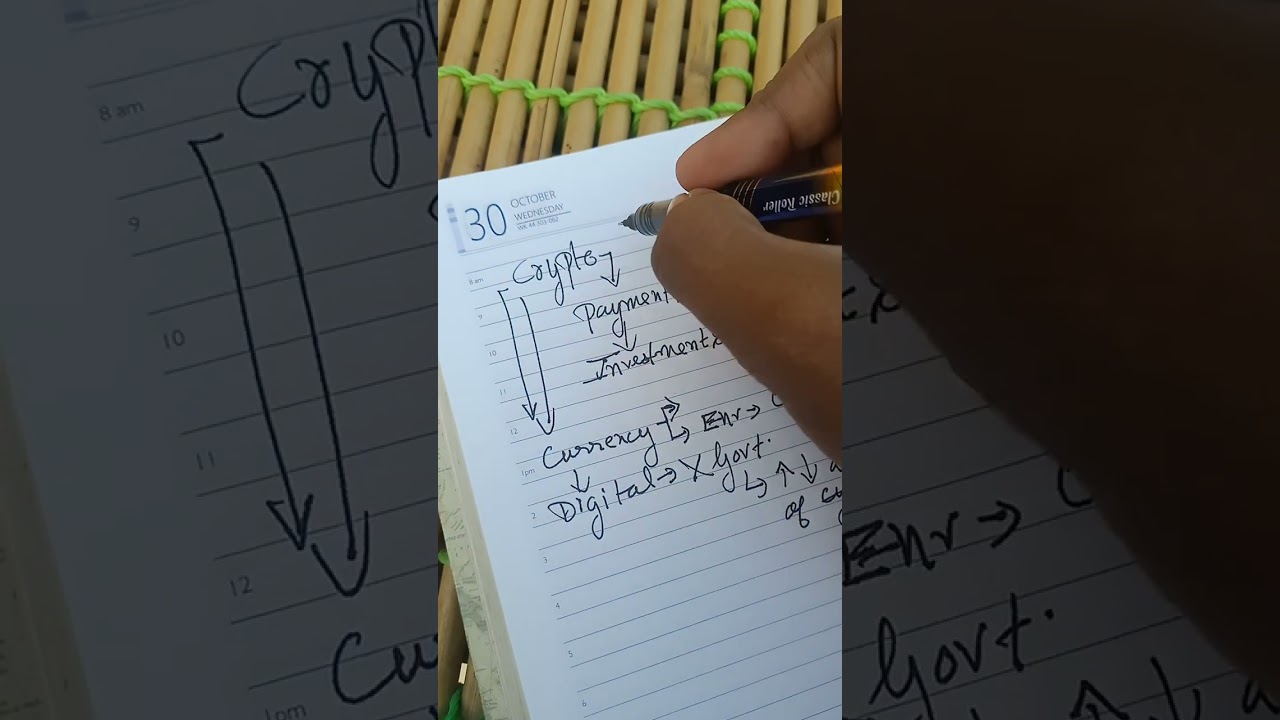 30 OCTOBER
WEDNESDAY
WK 44 303-062
Classic Roller
8 am
Crypto
9
Payment
10
Investment
11
12
Currency → Enr →
1pm
Digital → X Govt.
2
↳ ↑ ↓
of
3
4
5
6